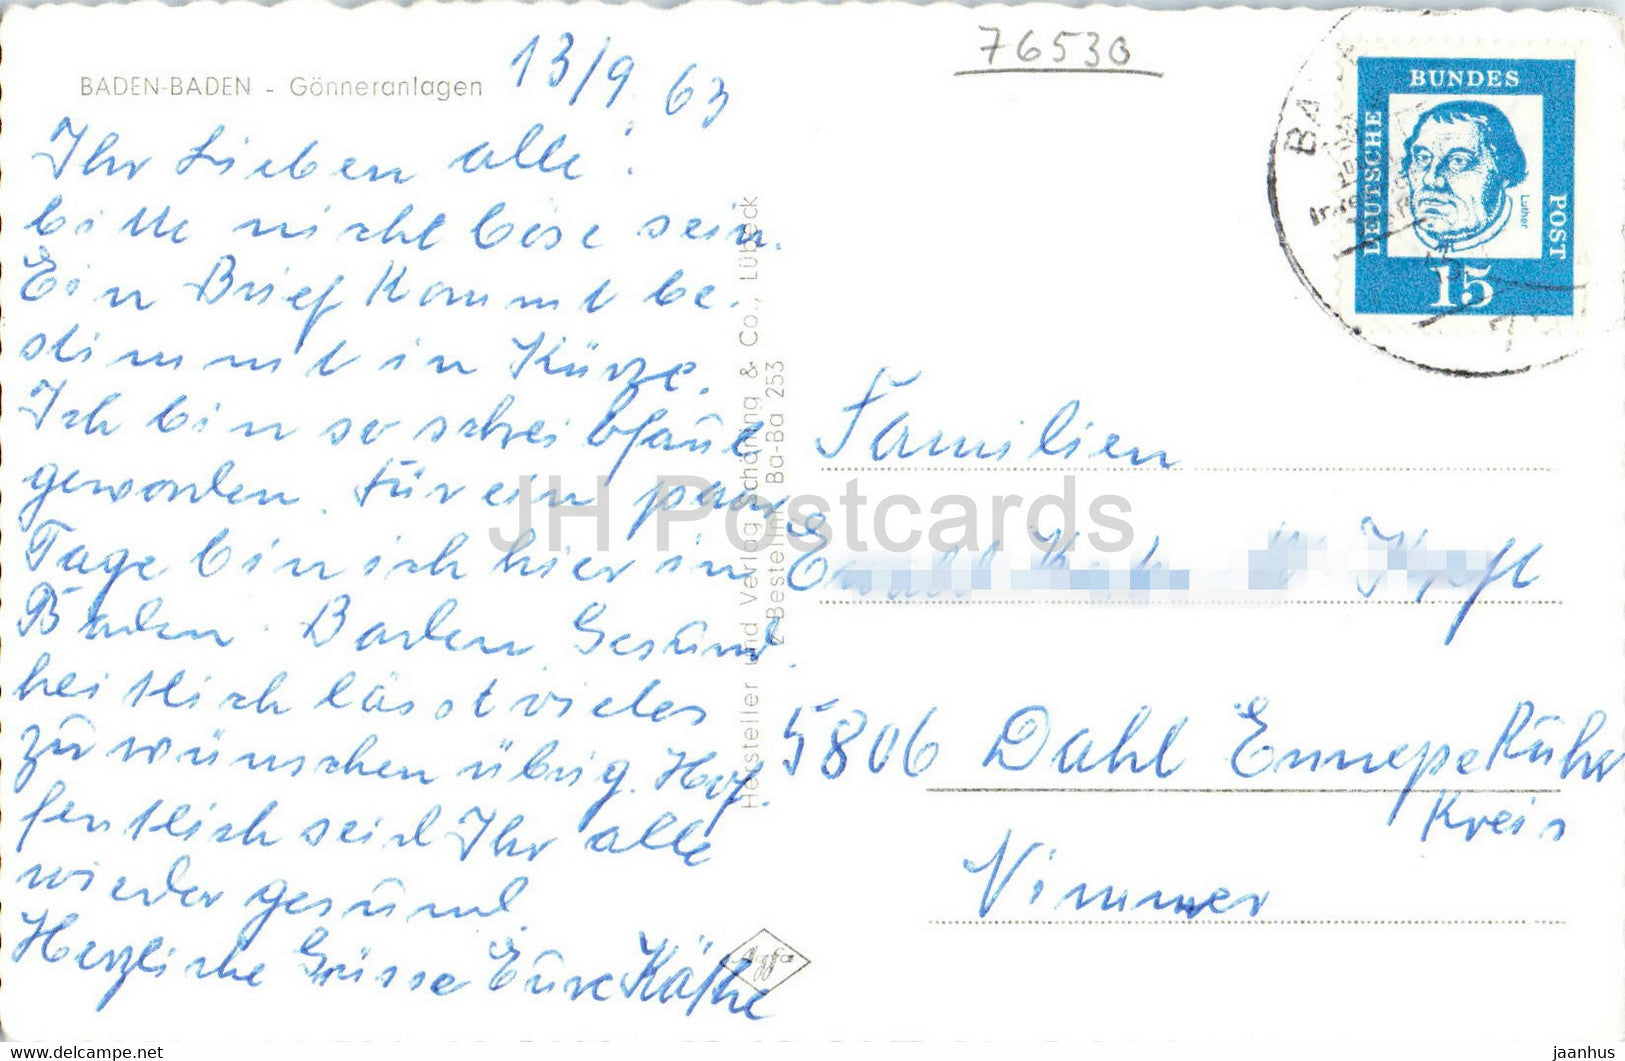 BADEN-BADEN - Gönneranlagen
13/9 63
Ihr Lieben alle!
bitte nicht böse sein.
Ein Brief kommt be-
stimmt in Kürze.
Ich bin so schreibfaul
geworden. Für ein paar
Tage bin ich hier in
Baden-Baden. Gesund-
heitlich lässt vieles
zu wünschen übrig. Hof-
fentlich seid Ihr alle
wieder gesund.
Herzliche Grüsse Eure Käthe
Agfa
Hersteller und Verlag Schöning & Co., Lübeck
Bestellnr. Ba-Ba 253
76530
DEUTSCHE BUNDES POST
Luther
15
BA
Familien
5806 Dahl Ennepe Ruhr
Kreis
Nimmer
JH Postcards
jaanhus - www.delcampe.net